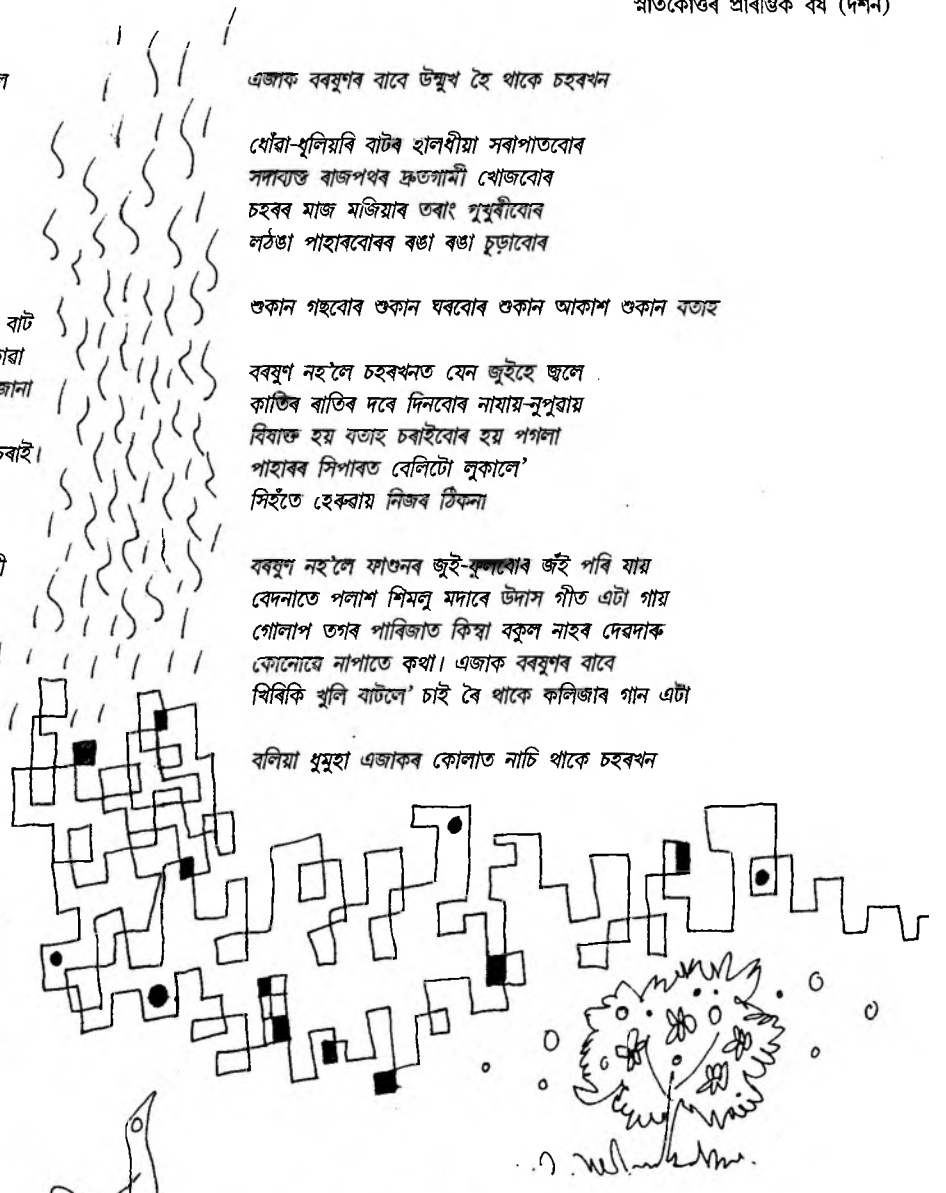 স্নাতকোত্তৰ প্ৰাৰম্ভিক বৰ্ষ (দৰ্শন)
এজাক বৰষুণৰ বাবে উন্মুখ হৈ থাকে চহৰখন
ধোঁৱা-ধূলিয়ৰি বাটৰ হালধীয়া সৰাপাতবোৰ
সদাব্যস্ত ৰাজপথৰ দ্ৰুতগামী খোজবোৰ
চহৰৰ মাজ মজিয়াৰ তৰাং পুখুৰীবোৰ
লঠঙা পাহাৰবোৰৰ ৰঙা ৰঙা চূড়াবোৰ
শুকান গছবোৰ শুকান ঘৰবোৰ শুকান আকাশ শুকান বতাহ
বৰষুণ নহ'লে চহৰখনত যেন জুইহে জ্বলে
কাতিৰ ৰাতিৰ দৰে দিনবোৰ নাযায়-নুপুৱায়
বিষাক্ত হয় বতাহ চৰাইবোৰ হয় পগলা
পাহাৰৰ সিপাৰত বেলিটো লুকালে'
সিহঁতে হেৰুৱায় নিজৰ ঠিকনা
বৰষুণ নহ'লে ফাগুনৰ জুই-ফুলবোৰ জঁই পৰি যায়
বেদনাতে পলাশ শিমলু মদাৰে উদাস গীত এটা গায়
গোলাপ তগৰ পাৰিজাত কিম্বা বকুল নাহৰ দেৱদাৰু
কোনোৱে নাপাতে কথা। এজাক বৰষুণৰ বাবে
খিৰিকি খুলি বাটলে' চাই ৰৈ থাকে কলিজাৰ গান এটা
বলিয়া ধুমুহা এজাকৰ কোলাত নাচি থাকে চহৰখন
বাট